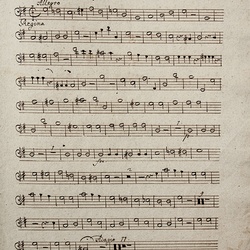 Allegro
Regina
p
fo
Adagio